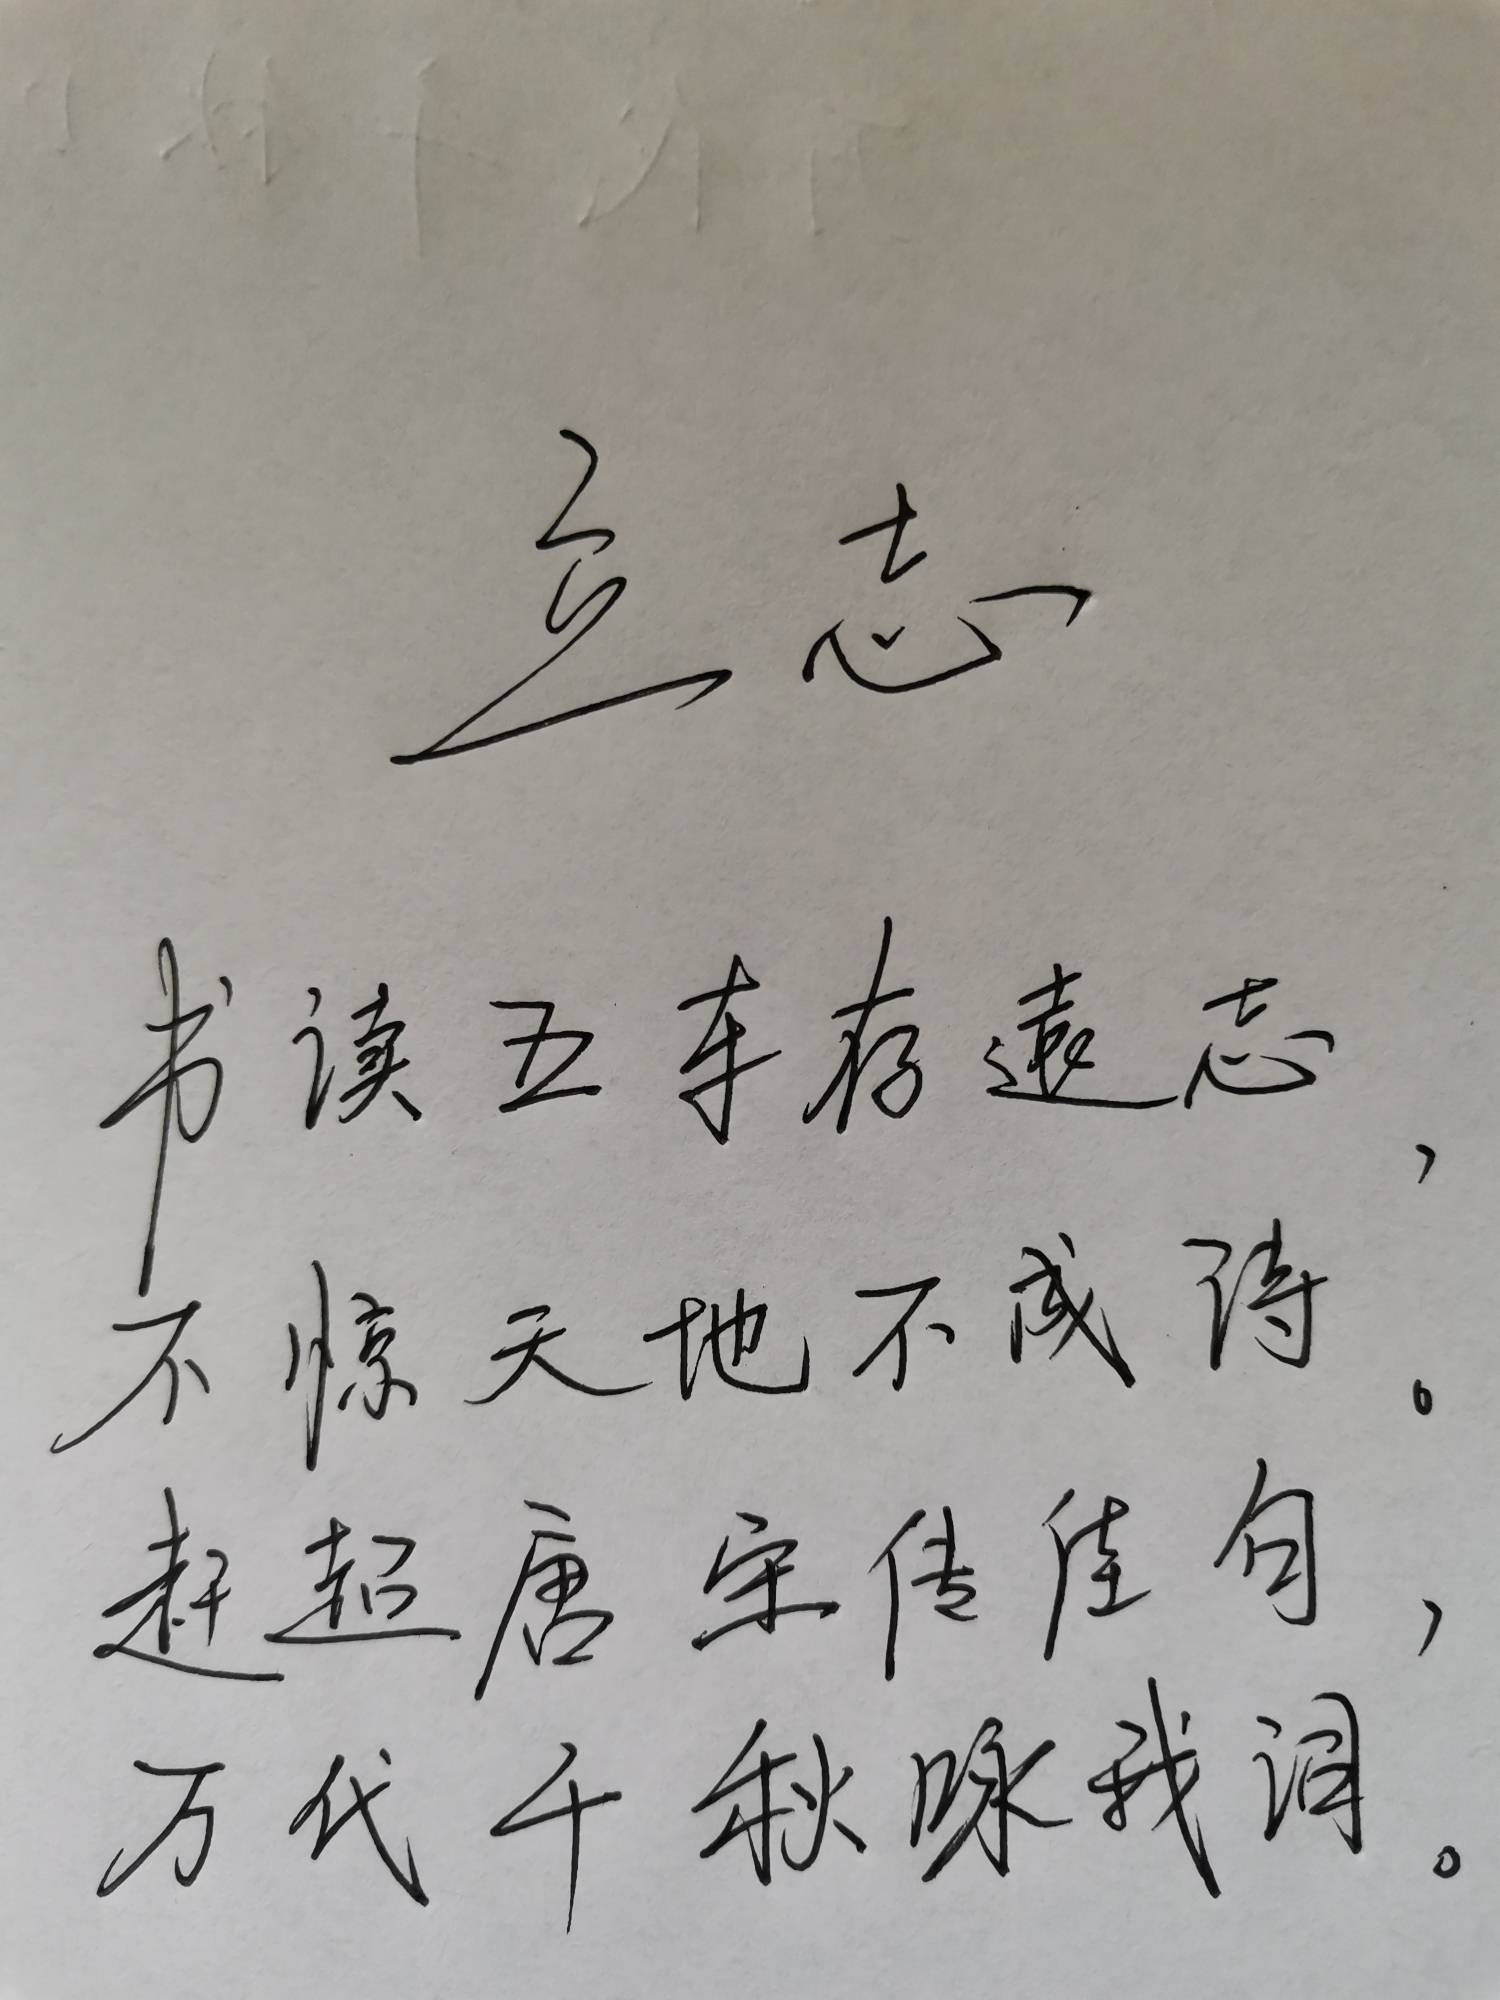 立志
书读五车存遠志，
不惊天地不成诗。
赶超唐宋传佳句，
万代千秋咏我词。